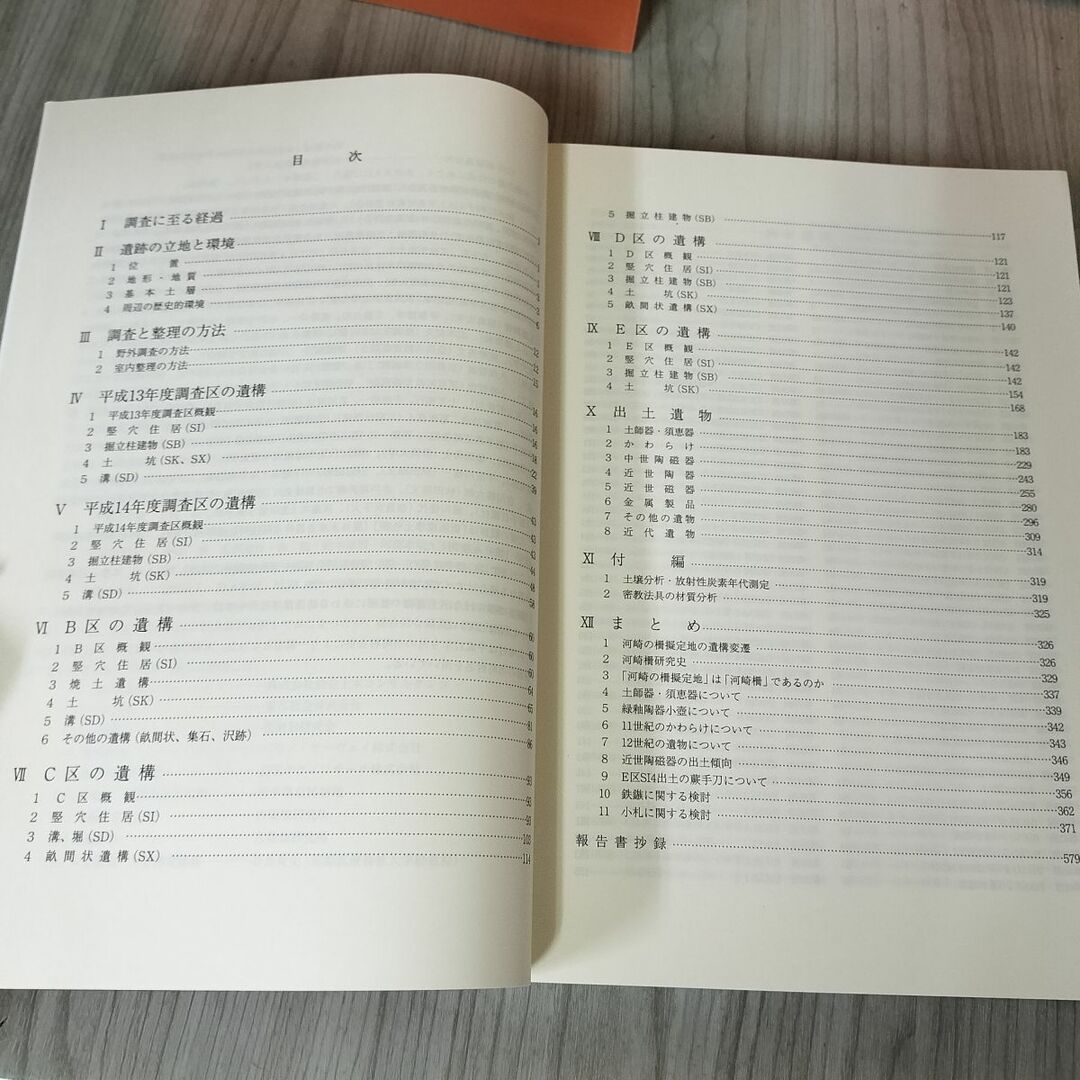 目 次
Ⅰ 調査に至る経過 1
Ⅱ 遺跡の立地と環境 1
1 位 置 1
2 地形・地質 1
3 基本土層 3
4 周辺の歴史的環境 6
Ⅲ 調査と整理の方法 12
1 野外調査の方法 12
2 室内整理の方法 15
Ⅳ 平成13年度調査区の遺構 16
1 平成13年度調査区概観 16
2 竪穴住居(SI) 16
3 掘立柱建物(SB) 18
4 土 坑(SK、SX) 22
5 溝(SD) 39
Ⅴ 平成14年度調査区の遺構 43
1 平成14年度調査区概観 43
2 竪穴住居(SI) 43
3 掘立柱建物(SB) 44
4 土 坑(SK) 48
5 溝(SD) 58
Ⅵ B区の遺構 60
1 B区概観 60
2 竪穴住居(SI) 60
3 焼土遺構 64
4 土 坑(SK) 65
5 溝(SD) 81
6 その他の遺構(畝間状、集石、沢跡) 86
Ⅶ C区の遺構 93
1 C区概観 93
2 竪穴住居(SI) 93
3 溝、堀(SD) 103
4 畝間状遺構(SX) 114
5 掘立柱建物(SB) 117
Ⅷ D区の遺構 121
1 D区概観 121
2 竪穴住居(SI) 121
3 掘立柱建物(SB) 123
4 土 坑(SK) 137
5 畝間状遺構(SX) 140
Ⅸ E区の遺構 142
1 E区概観 142
2 竪穴住居(SI) 142
3 掘立柱建物(SB) 154
4 土 坑(SK) 168
Ⅹ 出土遺物 183
1 土師器・須恵器 183
2 かわらけ 229
3 中世陶磁器 243
4 近世陶器 255
5 近世磁器 280
6 金属製品 296
7 その他の遺物 309
8 近代遺物 314
Ⅺ 付 編 319
1 土壌分析・放射性炭素年代測定 319
2 密教法具の材質分析 325
Ⅻ まとめ 326
1 河崎の柵擬定地の遺構変遷 326
2 河崎柵研究史 329
3 「河崎の柵擬定地」は「河崎柵」であるのか 337
4 土師器・須恵器について 339
5 緑釉陶器小壺について 342
6 11世紀のかわらけについて 343
7 12世紀の遺物について 346
8 近世陶磁器の出土傾向 349
9 E区SI4出土の蕨手刀について 356
10 鉄鏃に関する検討 362
11 小札に関する検討 371
報告書抄録 579